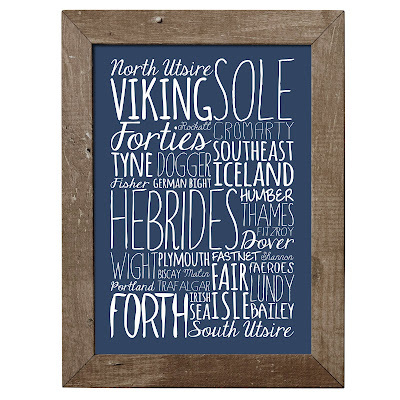 North Utsire
VIKING SOLE
Rockall
Forties CROMARTY
TYNE DOGGER SOUTHEAST
ICELAND
Fisher GERMAN BIGHT
HUMBER
HEBRIDES THAMES
FITZROY
Dover
WIGHT PLYMOUTH FASTNET Shannon
BISCAY Malin FAIR FAEROES
Portland TRAFALGAR LUNDY
FORTH IRISH SEA ISLE BAILEY
South Utsire